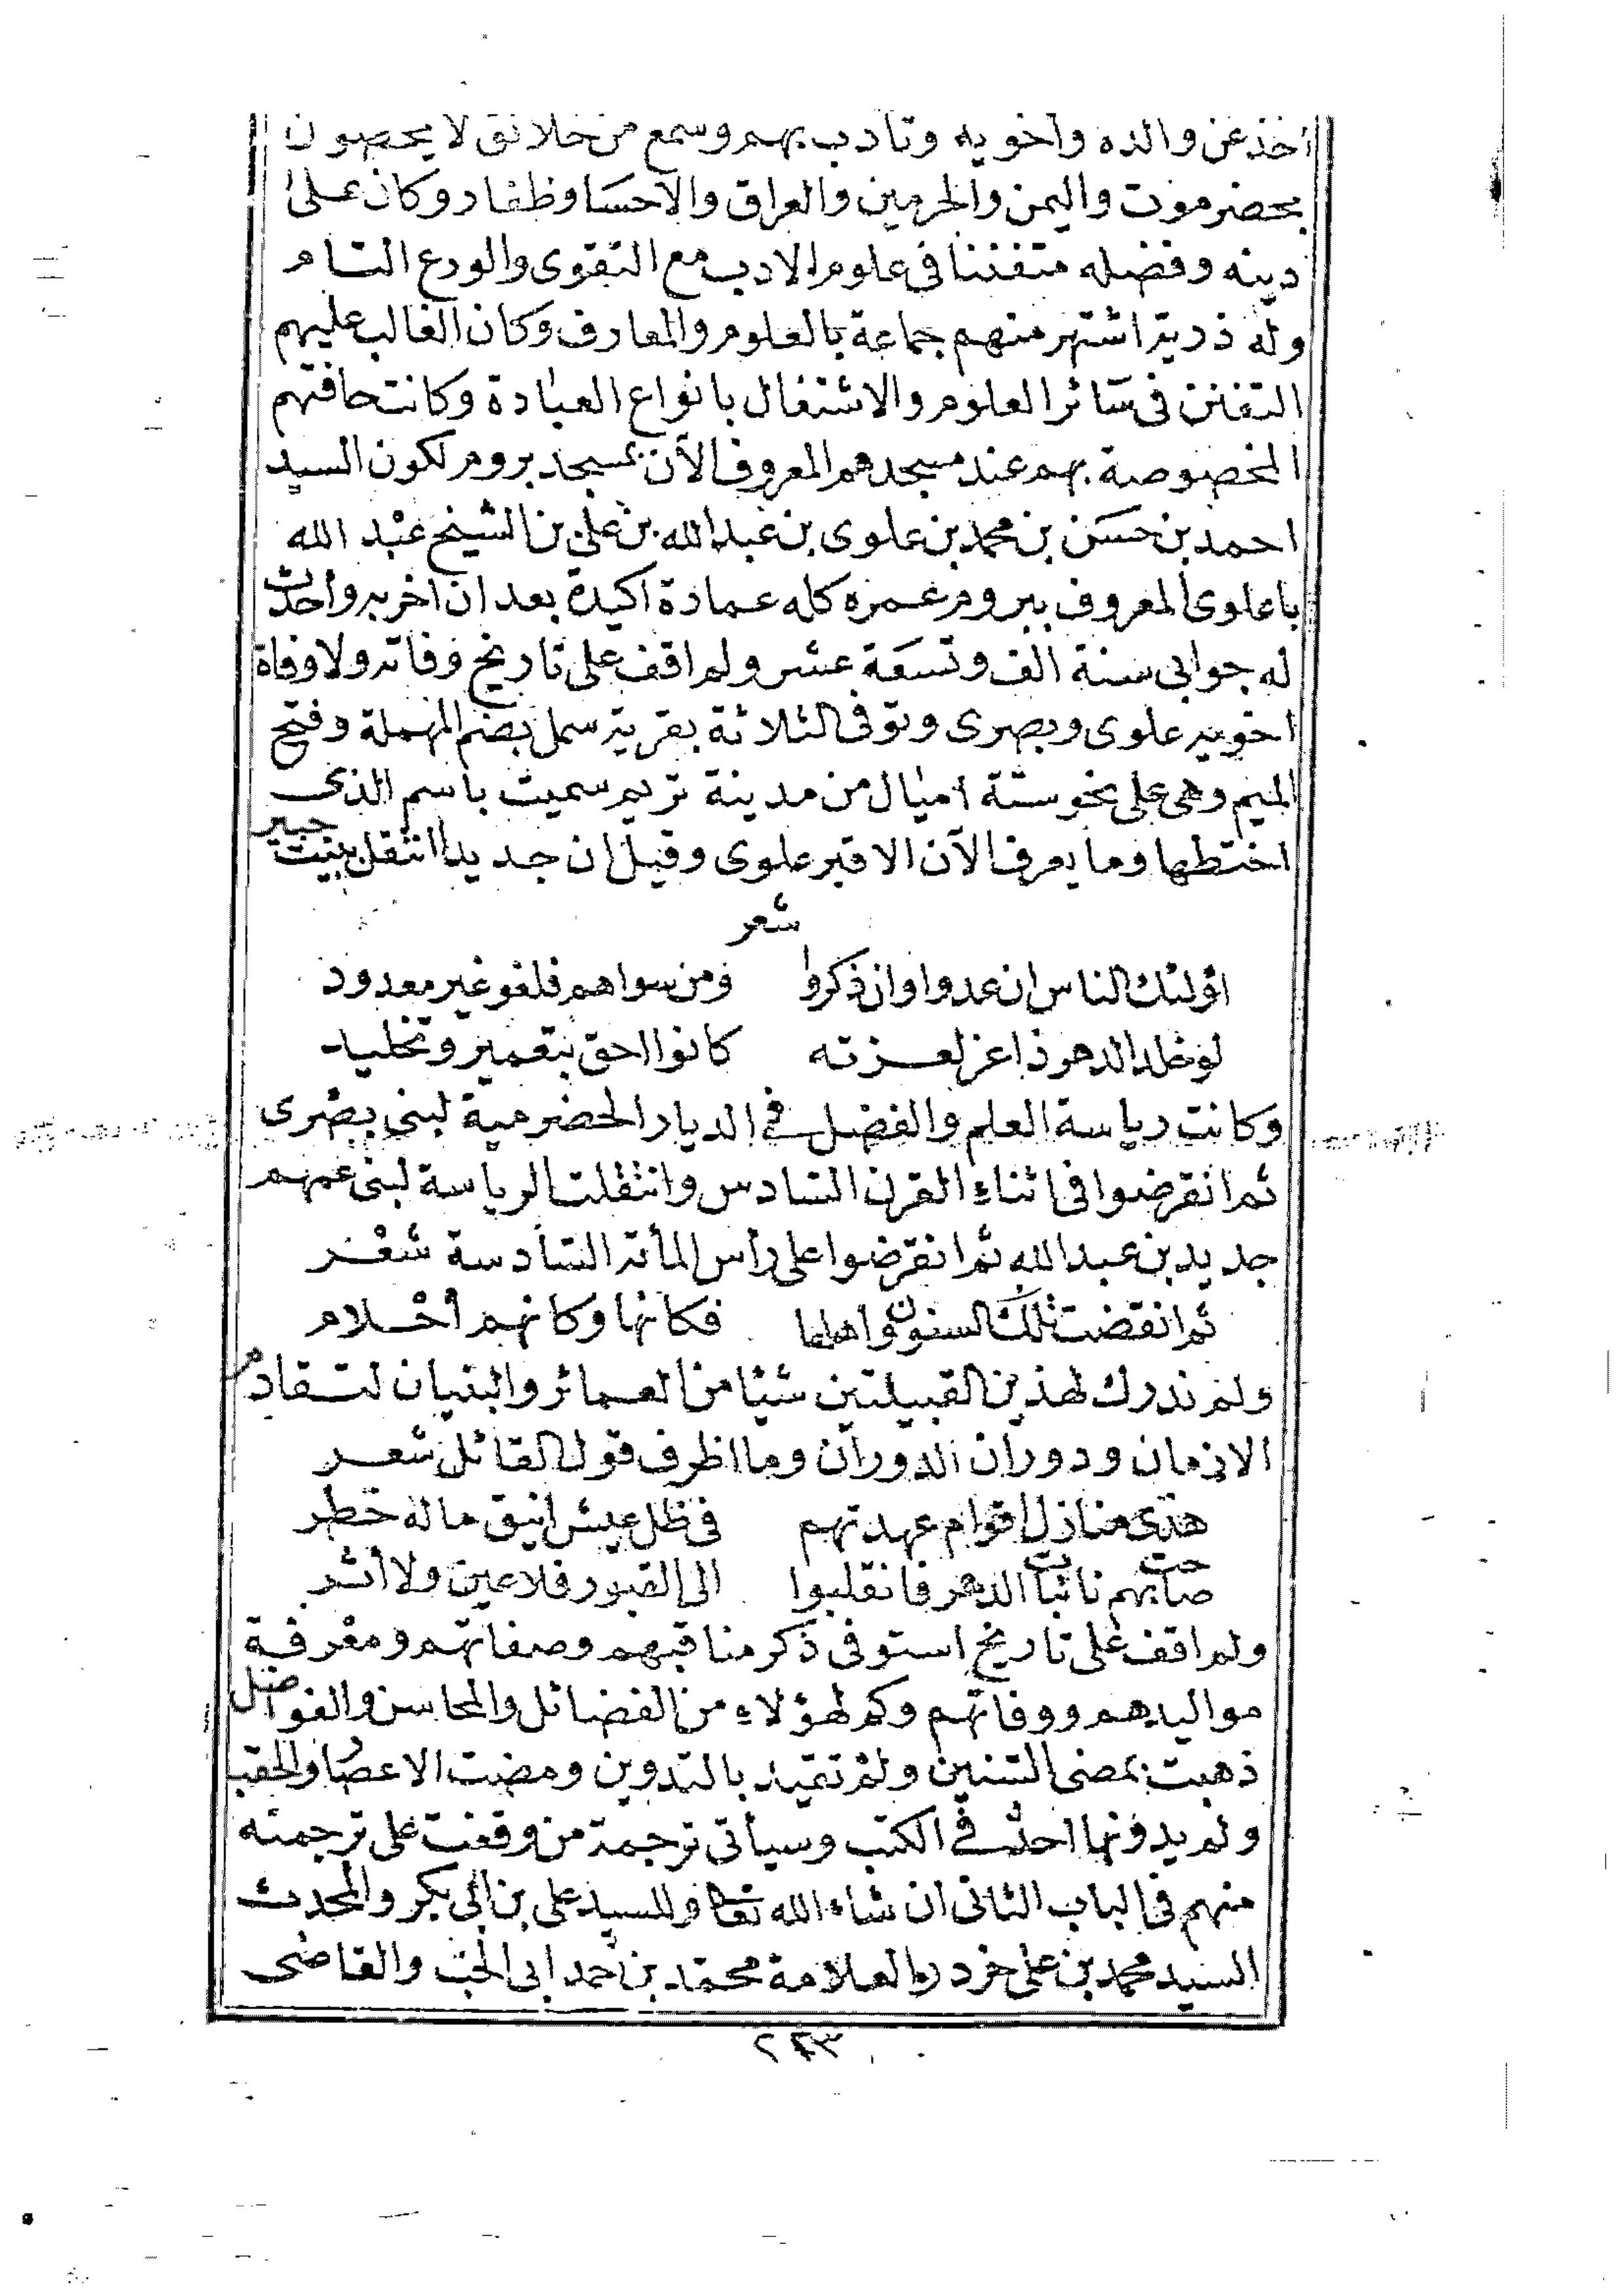 اخذ عن والده واخويه وتادب بهم وسمع من خلائق لا يحصون
بحضرموت واليمن والحرمين والعراق والاحسا وظفار وكان على
دينه وفضله متفننا في علوم الادب مع التقوى والورع التام
وله ذرية اشتهر منهم جماعة بالعلوم والمعارف وكان الغالب عليهم
التفنن في سائر العلوم والاشتغال بانواع العبادة وكانت حافتهم
المخصوصة بهم عند مسجدهم المعروف الآن بمسجد بروم لكون السيد
احمد بن حسن بن محمد بن علوى بن عبد الله بن على بن الشيخ عبد الله
باعلوى المعروف ببروم عمره كله عمارة اكيدة بعد ان اخربه واحدث
له جوابى سنة الف وتسعة عشر ولم اقف على تاريخ وفاته ولا وفاة
اخويه علوى وبصرى وتوفى الثلاثة بقرية سمل بضم المهملة وفتح
الميم وهى على نحو ستة اميال من مدينة تريم سميت باسم الذى
اختطها وما يعرف الآن الا قبر علوى وقيل ان جديدا انتقل ببيت جبير
شعر
اولئك الناس ان عدوا وان ذكروا ومن سواهم فلغو غير معدود
لو خلد الدهر ذا عز لعزته كانوا احق بتعمير وتخليد
وكانت رياسة العلم والفضل في الديار الحضرمية لبنى بصرى
ثم انقرضوا في اثناء القرن السادس وانتقلت الرياسة لبنى عمهم
جديد بن عبد الله ثم انقرضوا على رأس المأتة السادسة شعر
ثم انقضت تلك السنون واهلها فكانها وكانهم أحلام
ولم ندرك لهذين القبيلتين شيئا من العمائر والبنيان لتقادم
الازمان ودوران الدوران وما اظرف قول القائل شعر
هذى منازل اقوام عهدتهم في ظل عيش انيق ماله خطر
صاحت بهم نائبات الدهر فانقلبوا الى القبور فلا عين ولا أثر
ولم اقف على تاريخ استوفى ذكر مناقبهم وصفاتهم ومعرفة
مواليدهم ووفاتهم وكم لهؤلاء من الفضائل والمحاسن والفواضل
ذهبت بمضى السنين ولم تقيد بالتدوين ومضت الاعصار والحقب
ولم يدونها احد في الكتب وسيأتى ترجمة من وقفت على ترجمته
منهم في الباب الثانى ان شاء الله تعا وللسيد على بن ابى بكر والمحدث
السيد محمد بن على خرد والعلامة محمد بن احمد ابى الحب والقاضى
٢٤٣